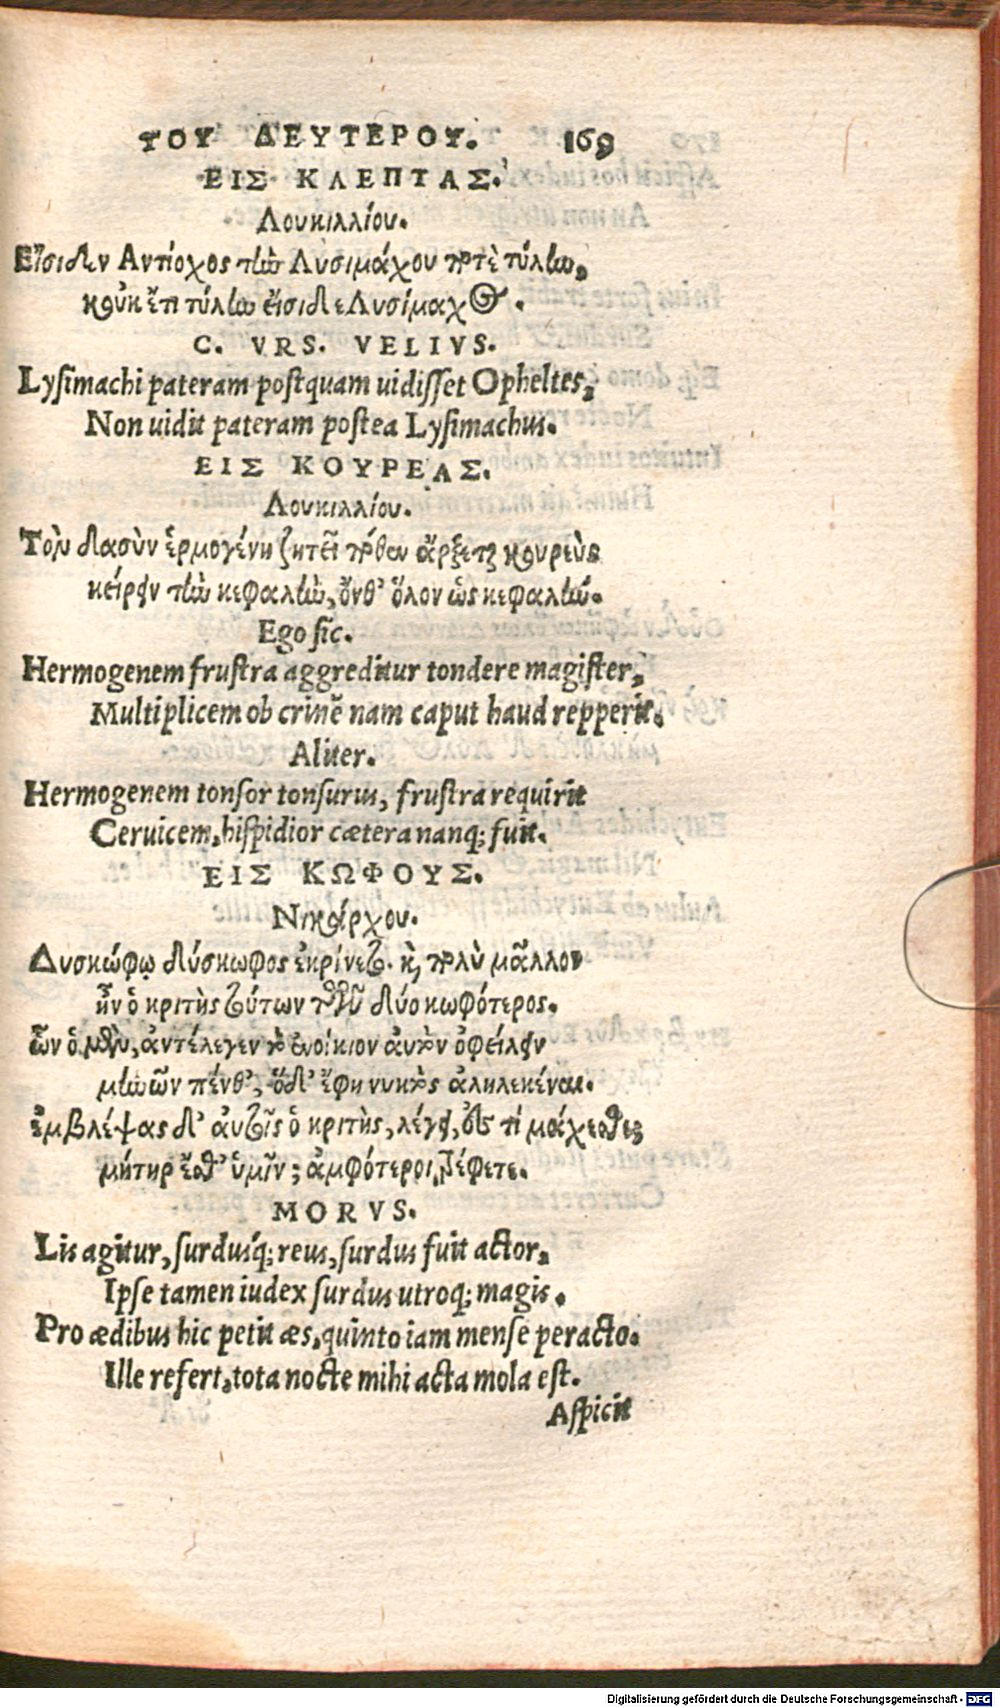 ΤΟΥ ΔΕΥΤΕΡΟΥ. 169
ΕΙΣ ΚΛΕΠΤΑΣ.
Λουκιλλίου.
Εἴσιδεν Αντίοχος τὴν Λυσιμάχου ποτὲ τύλην,
κοὐκ ἔτι τύλην εἴσιδε Λυσίμαχος.
C. VRS. VELIVS.
Lysimachi pateram postquam uidisset Opheltes,
Non uidit pateram postea Lysimachus.
ΕΙΣ ΚΟΥΡΕΑΣ.
Λουκιλλίου.
Τὸν δασὺν ἑρμογένη ζητεῖ πόθεν ἄρξεται κουρεὺς
κείρειν τὴν κεφαλὴν, ὄνθ' ὅλον ὡς κεφαλήν.
Ego sic.
Hermogenem frustra aggreditur tondere magister,
Multiplicem ob crinē nam caput haud repperit.
Aliter.
Hermogenem tonsor tonsurus, frustra requirit
Ceruicem, hispidior cætera nanq; fuit.
ΕΙΣ ΚΩΦΟΥΣ.
Νικάρχου.
Δυσκώφῳ δύσκωφος ἐκρίνετο. καὶ πολὺ μᾶλλον
ἦν ὁ κριτὴς τούτων τῶν δύο κωφότερος.
ὧν ὁ μὲν, ἀντέλεγεν τὸ ἐνοίκιον αὐτὸν ὀφείλειν
μηνῶν πένθ', ὁ δ' ἔφη νυκτὸς ἀληλεκέναι.
ἐμβλέψας δ' αὐτοῖς ὁ κριτὴς, λέγει, ἐς τί μάχεσθε;
μήτηρ ἔσθ' ὑμῖν; ἀμφότεροι τρέφετε.
MORVS.
Lis agitur, surdusq́; reus, surdus fuit actor,
Ipse tamen iudex surdus utroq; magis.
Pro ædibus hic petit æs, quinto iam mense peracto.
Ille refert, tota nocte mihi acta mola est.
Aspicit
Digitalisierung gefördert durch die Deutsche Forschungsgemeinschaft - DFG